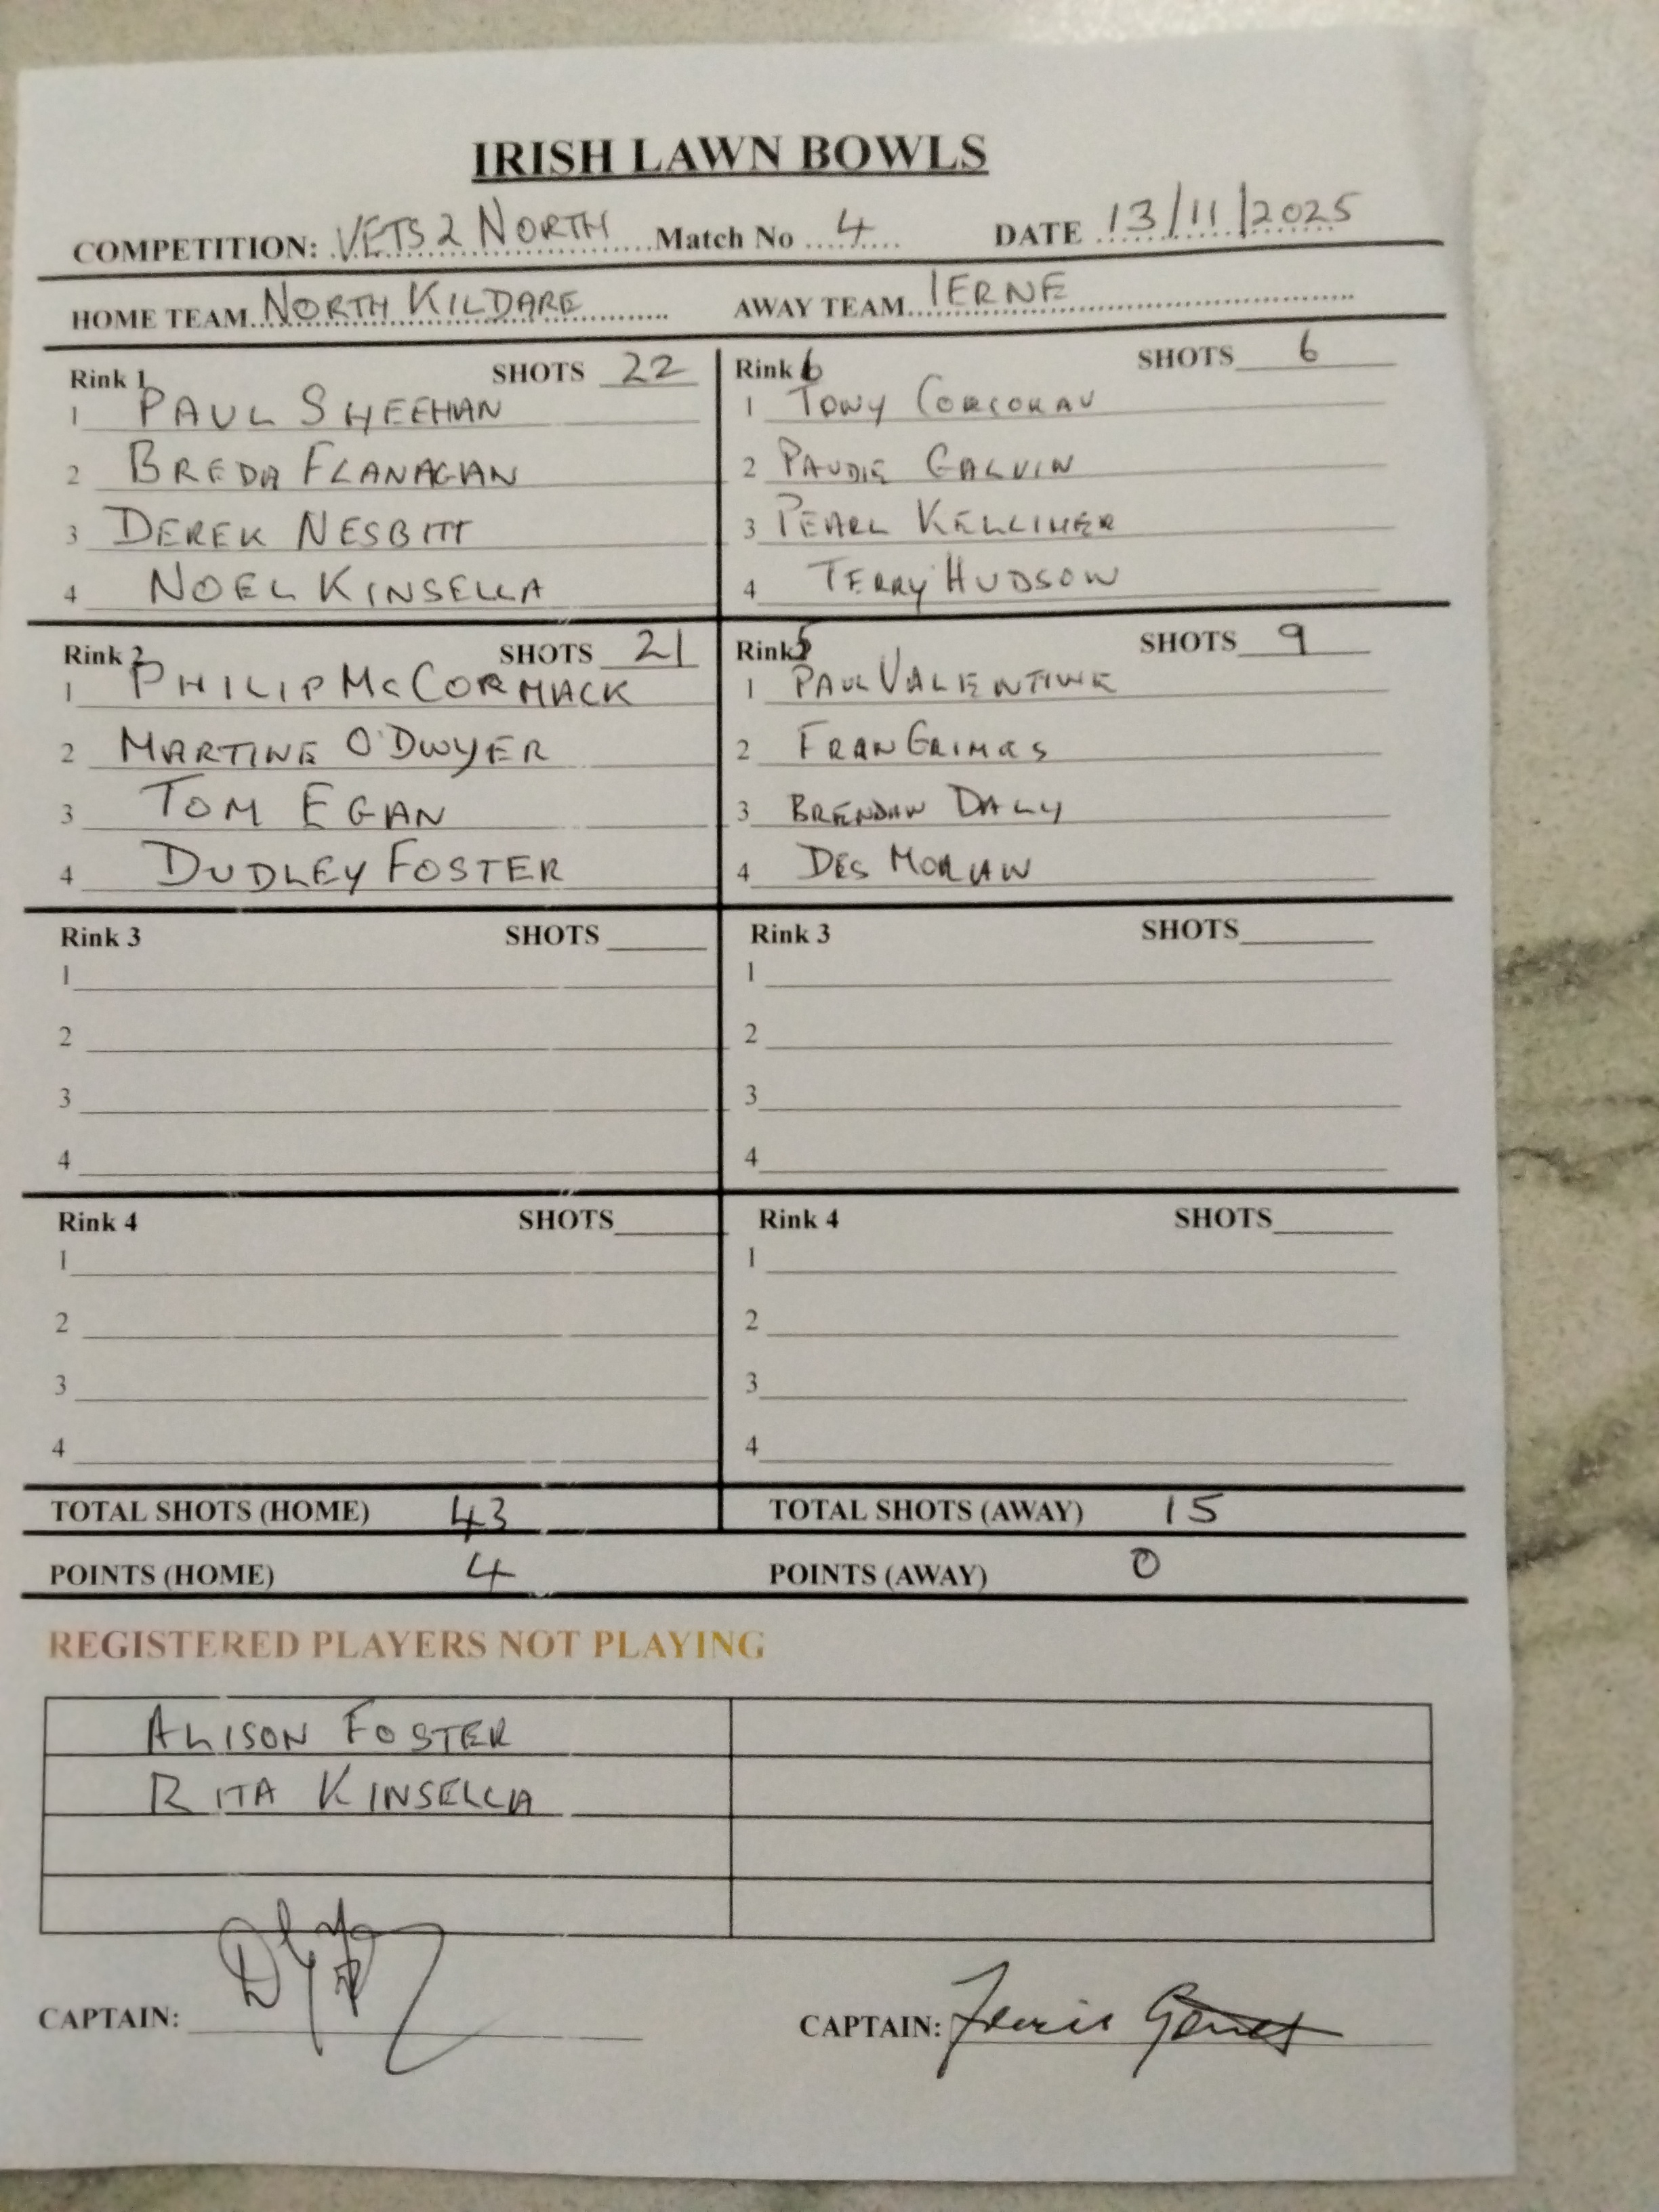 IRISH LAWN BOWLS
COMPETITION: VETS 2 NORTH Match No 4 DATE 13/11/2025
HOME TEAM NORTH KILDARE AWAY TEAM IERNE
Rink 1 SHOTS 22
1 PAUL SHEEHAN
2 BREDA FLANAGAN
3 DEREK NESBITT
4 NOEL KINSELLA
Rink 6 SHOTS 6
1 TONY CORCORAN
2 PAUDIE GALVIN
3 PEARL KELLIHER
4 TERRY HUDSON
Rink 2 SHOTS 21
1 PHILIP McCORMACK
2 MARTINE O'DWYER
3 TOM EGAN
4 DUDLEY FOSTER
Rink 5 SHOTS 9
1 PAUL VALENTINE
2 FRAN GRIMES
3 BRENDAN DALY
4 DES MORAN
Rink 3 SHOTS
1
2
3
4
Rink 3 SHOTS
1
2
3
4
Rink 4 SHOTS
1
2
3
4
Rink 4 SHOTS
1
2
3
4
TOTAL SHOTS (HOME) 43 TOTAL SHOTS (AWAY) 15
POINTS (HOME) 4 POINTS (AWAY) 0
REGISTERED PLAYERS NOT PLAYING
ALISON FOSTER
RITA KINSELLA
CAPTAIN: CAPTAIN: